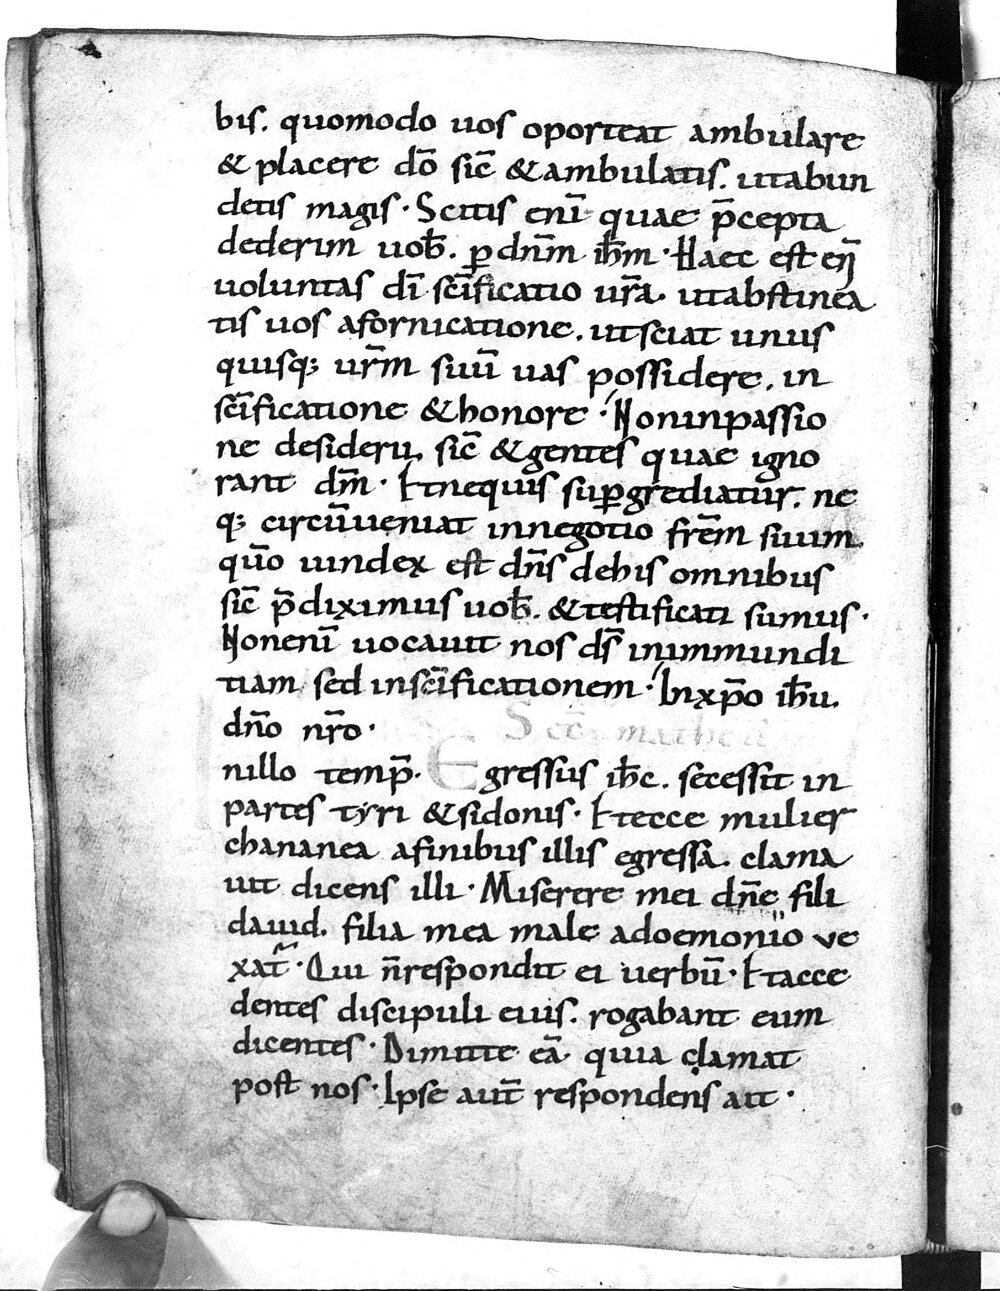 bis. quomodo uos oporteat ambulare
& placere dō sic̄ & ambulatis. utabun
detis magis · Scitis enī quae p̄cepta
dederim uob̄. ꝑ dn̄m ih̄m · Haec est en̄
uoluntas dī sc̄ificatio ur̄a. utabstinea
tis uos afornicatione. utsciat unus
quisq; ur̄m suū uas possidere. in
sc̄ificatione & honore · Noninpassio
ne desiderii. sic̄ & gentes quae igno
rant dm̄ · Etnequis suꝑgrediatur. ne
q; circūueniat innegotio fr̄em suum.
qūo uindex est dn̄s dehis omnibus
sic̄ p̄diximus uob̄. & testificati sumus ·
Nonenī uocauit nos ds̄ inimmundi
tiam, sed insc̄ificationem · Inxp̄o ih̄u.
dn̄o nr̄o · Sec̄ matheū
nillo temp̄. Egressus ih̄c. secessit in
partes tyri & sidonis · Etecce mulier
chananea afinibus illis egressa. clama
uit dicens illi · Miserere mei dn̄e fili
dauid. filia mea male adoemonio ve
xat᷑ · Qui n̄respondit ei uerbū · Etacce
dentes discipuli eius. rogabant eum
dicentes · Dimitte eā quia clamat
post nos · Ipse aut̄ respondens ait ·